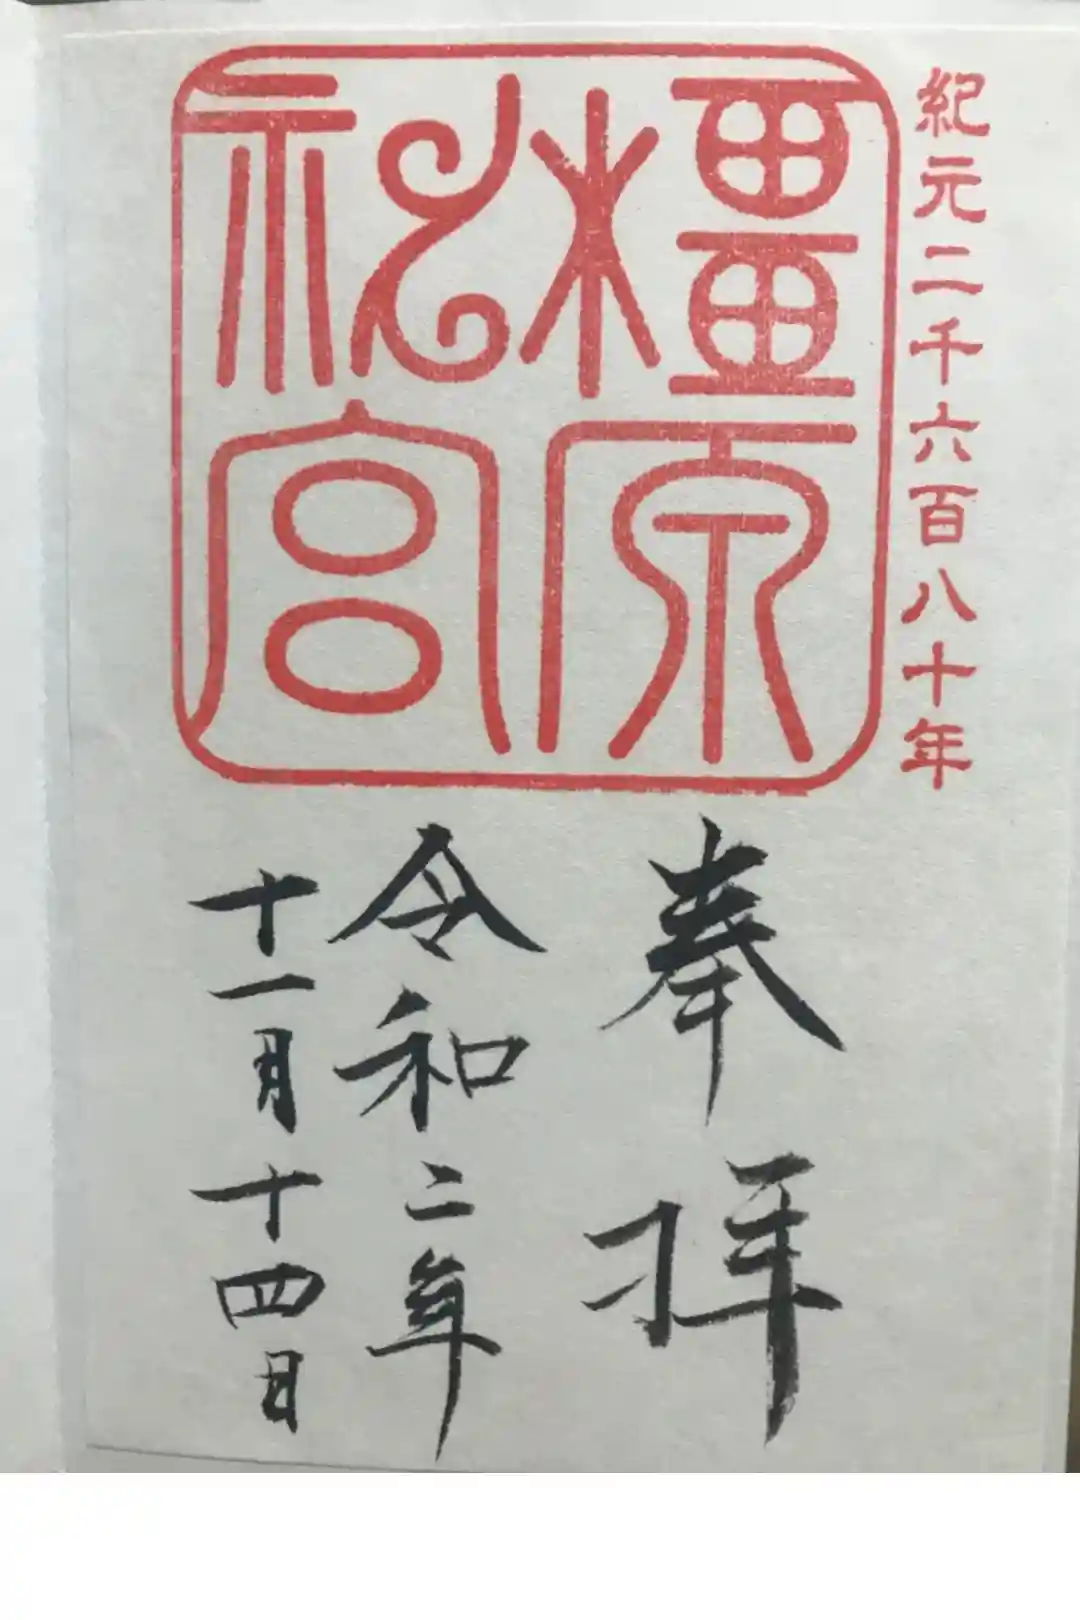 紀元二千六百八十年
橿原
神宮
奉拝
令和二年
十一月十四日